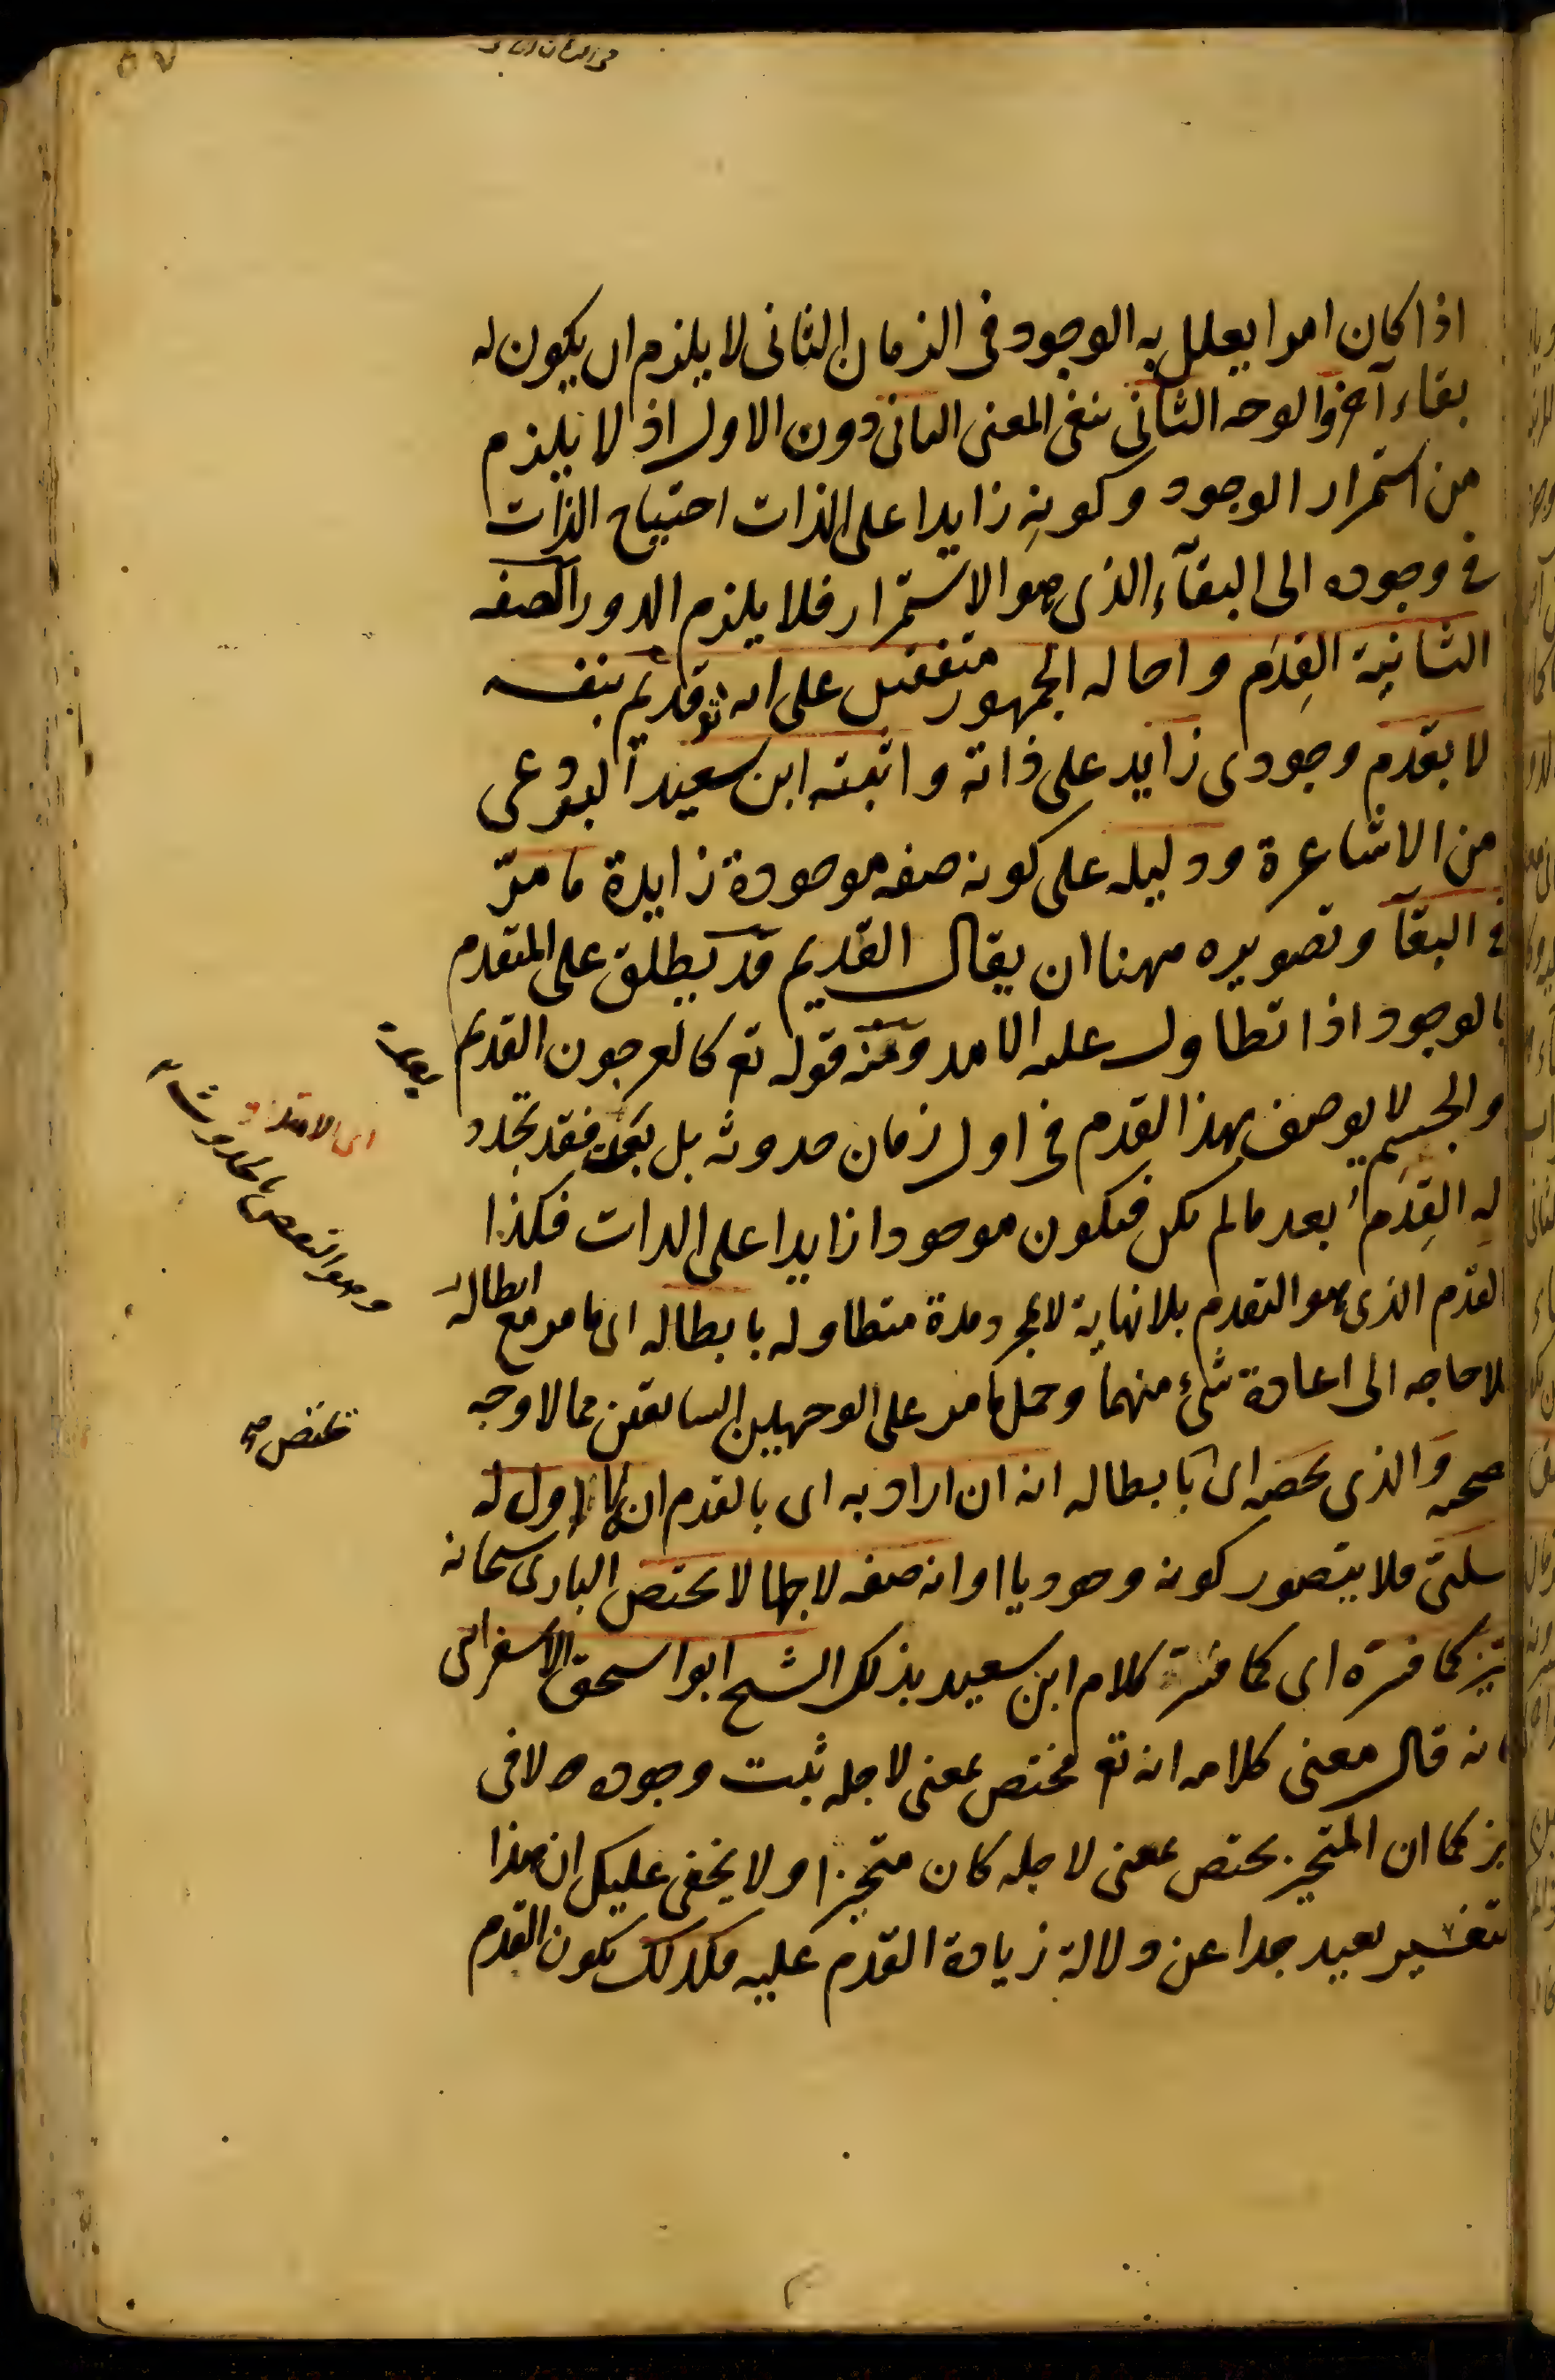 اذا كان امرا يعلل به الوجود فى الزمان الثانى لا يلزم ان يكون له
بقاء آخر والوجه الثانى ينفى المعنى الثانى دون الاول اذ لا يلزم
من استمرار الوجود وكونه زايدا على الذات احتياج الذات
فى وجوده الى البقآء الذى هو الاستمرار فلا يلزم الدور الصفه
الثانية القِدَم واحاله الجمهور متفقين على انه تع قديم بنفسه
لا بقدم وجودى زايد على ذاته واثبته ابن سعيد
من الاشاعرة ودليله على كونه صفه موجودة زايدة ما مرّ
فى البقآ وتصويره ههنا ان يقال القديم قد يطلق على المتقدم
بالوجود اذا تطاول عليه الامد ومنه قوله تع كالعرجون القديم
والجسم لا يوصف بهذا القدم فى اول زمان حدوثه بل بعده فقد تجدد
له القِدَم بعد ما لم يكن فيكون موجودا زايدا على الذات فكذا
القدم الذى هو التقدم بلا نهاية لا بمجرد مدة متطاوله بابطاله اى ما مر مع ابطاله
فلا حاجه الى اعادة شئ منهما وحمل ما مر على الوجهين السابقين مما لا وجه
صحه والذى يخصه اى بابطاله انه ان اراد به اى بالقدم انه لا اول له
سلبى فلا يتصور كونه وجوديا او انه صفه لاجلها لا يختص البارى سبحانه
كما فسره اى كما فسر كلام ابن سعيد بذلك الشيخ ابو اسحق الاسفراينى
فانه قال معنى كلامه انه تع مختص بمعنى لاجله ثبت وجوده لا فى
حيز كما ان المتحيز يختص بمعنى لاجله كان متحيزا ولا يخفى عليك ان هذا
التفسير بعيد جدا عن دلالة زيادة القدم عليه فكذلك يكون القدم